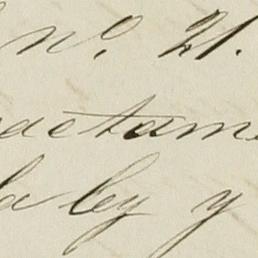 nº. 21.
actam
la ley y